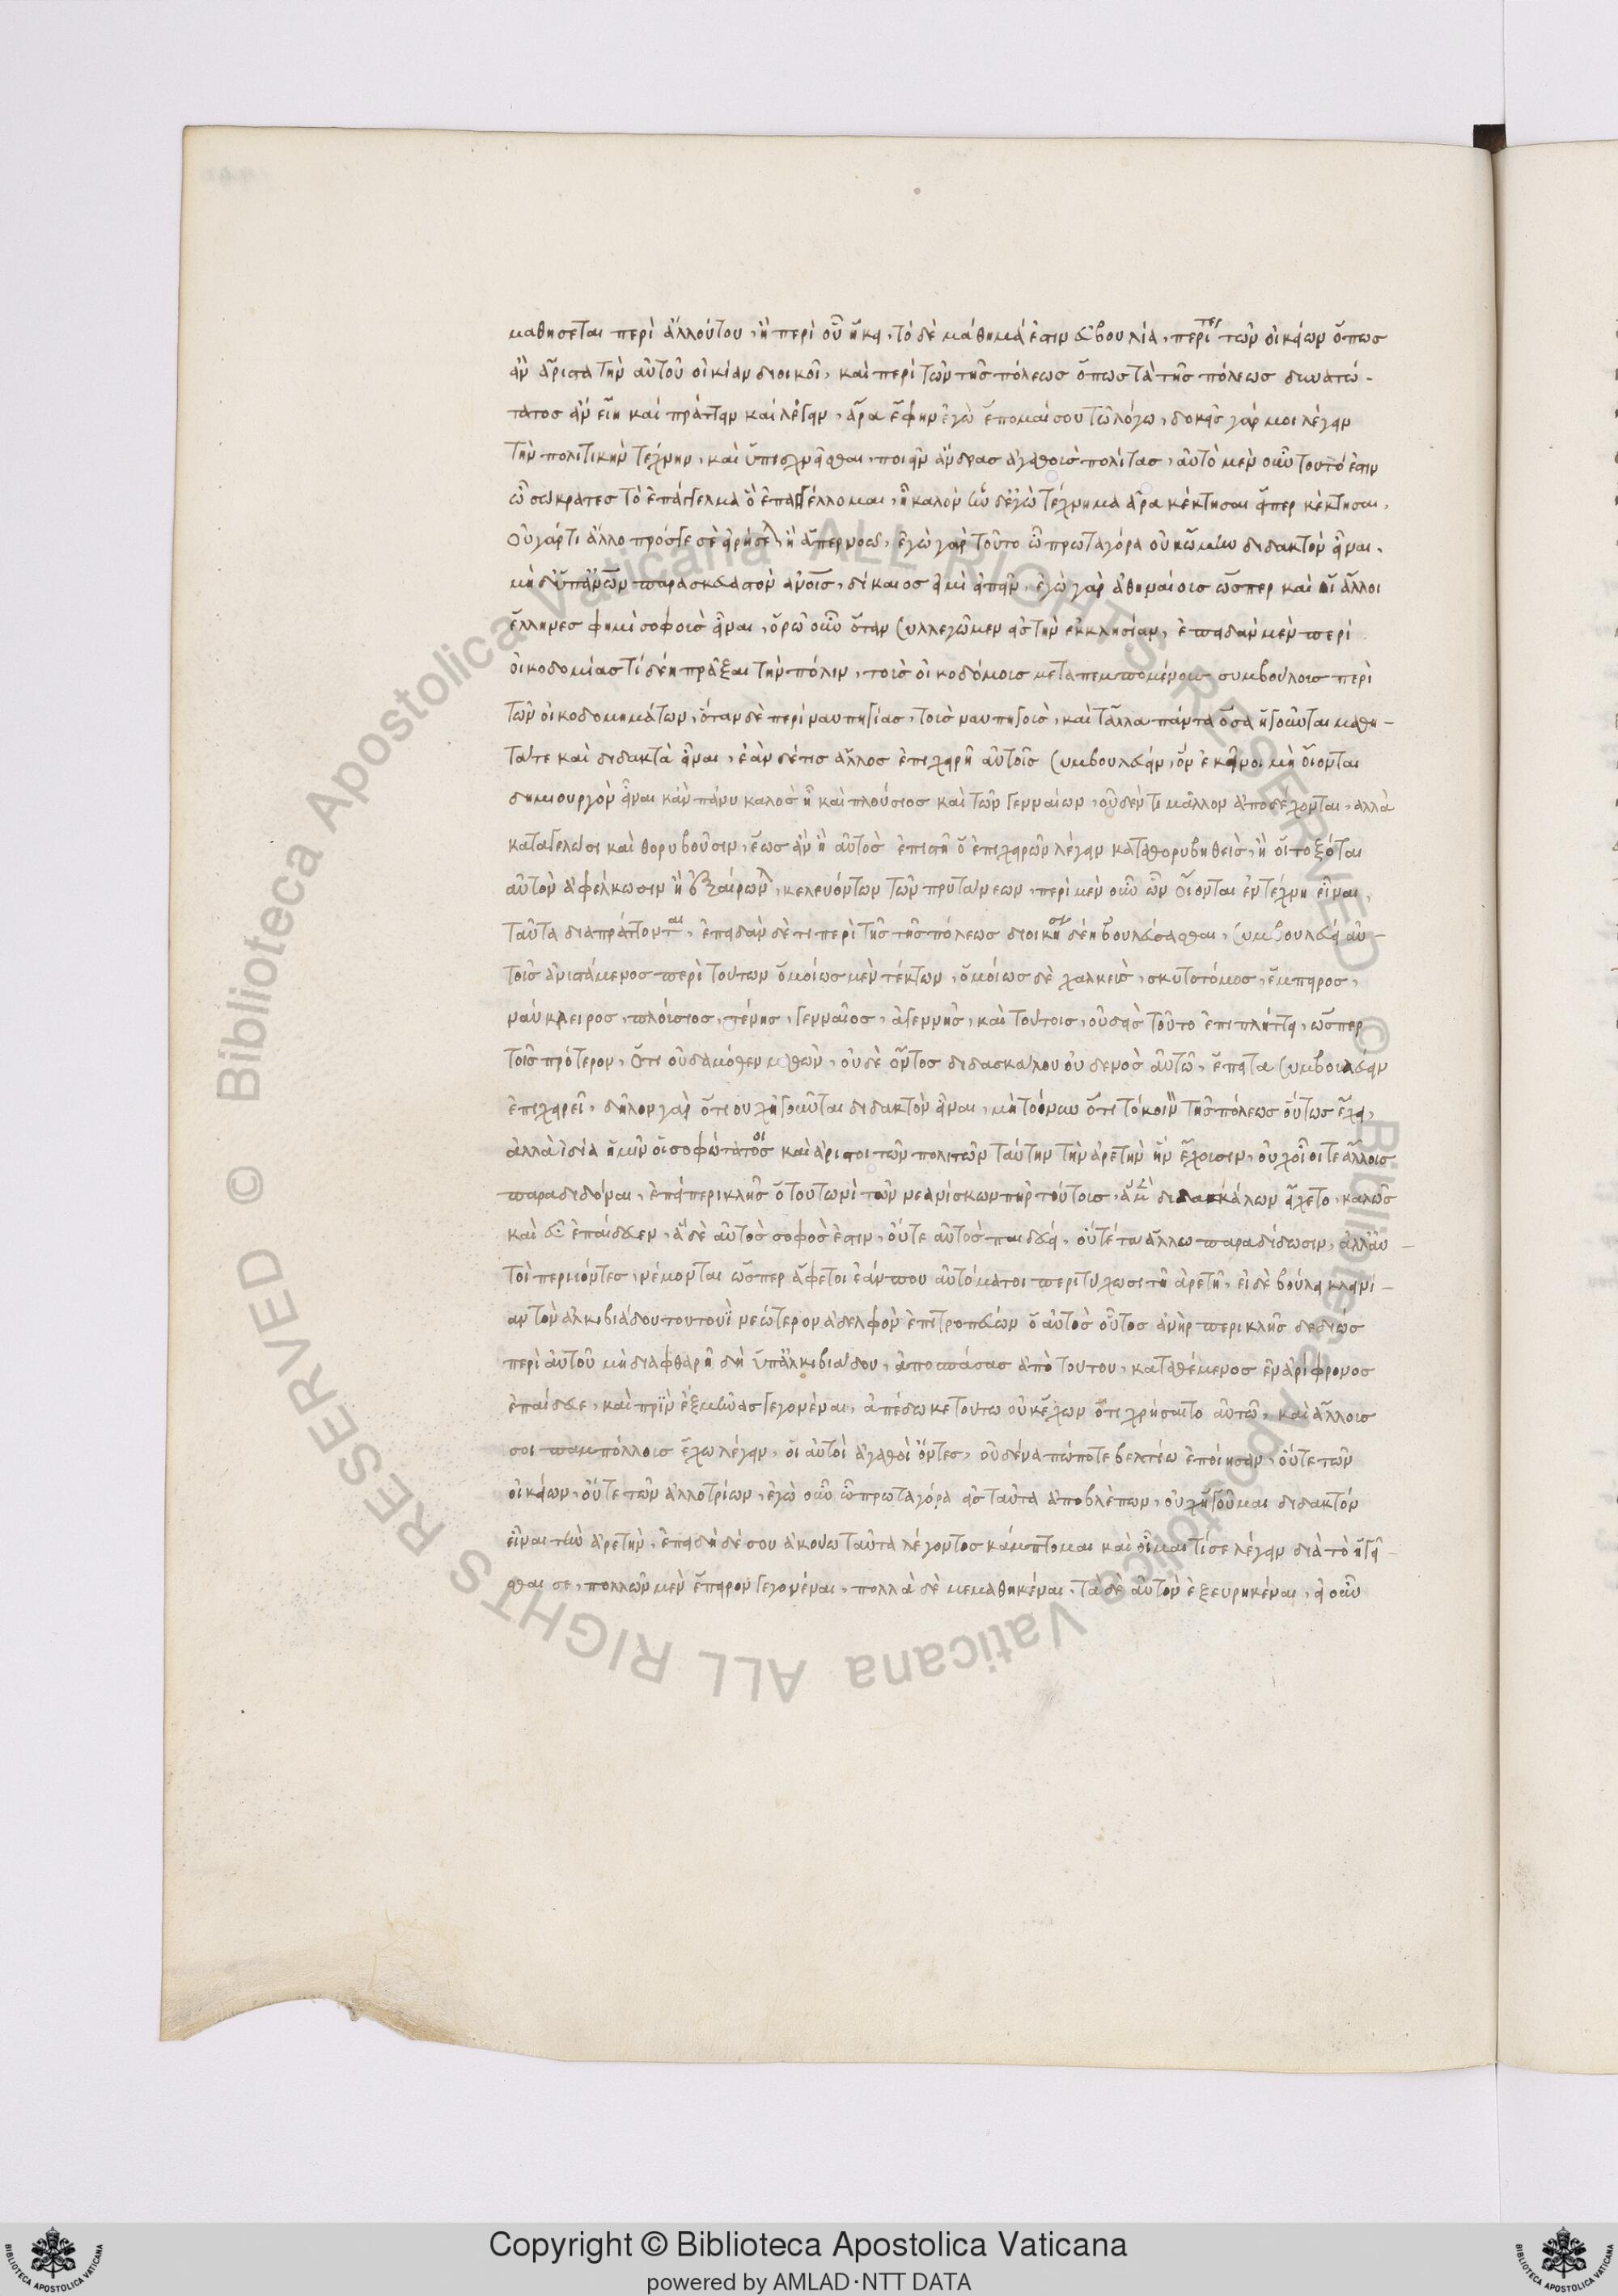 μαθήσεται περὶ ἄλλού του, ἢ περὶ οὗ ἥκει, τὸ δὲ μάθημά ἐστιν εὐβουλία, περί τε τῶν οἰκείων ὅπως
ἂν ἄριστα τὴν αὐτοῦ οἰκίαν διοικοῖ, καὶ περὶ τῶν τῆς πόλεως ὅπως τὰ τῆς πόλεως δυνατώ-
τατος ἂν εἴη καὶ πράττειν καὶ λέγειν, ἆρα ἔφην ἐγὼ ἕπομαί σου τῶ λόγω, δοκεῖς γάρ μοι λέγειν
τὴν πολιτικὴν τέχνην, καὶ ὑπισχνεῖσθαι ποιεῖν ἄνδρας ἀγαθοὺς πολίτας, αὐτὸ μὲν οὖν τοῦτό ἐστιν
ὦ σώκρατες τὸ ἐπάγγελμα ὃ ἐπαγγέλλομαι, ἦ καλὸν ἦν δ' ἐγὼ τέχνημα ἆρα κέκτησαι εἴπερ κέκτησαι,
οὐ γάρ τι ἄλλο πρός γε σὲ εἰρήσε ἢ ἅπερ νοῶ, ἐγὼ γὰρ τοῦτο ὦ πρωταγόρα οὐκ ὤμην διδακτὸν εἶναι,
μὴ δ' ὑπ' ἀνῶν παρασκευαστὸν ἀνοις, δίκαιος εἰμὶ εἰπεῖν, ἐγὼ γὰρ ἀθηναίους ὥσπερ καὶ οἱ ἄλλοι
ἕλληνες φημὶ σοφοὺς εἶναι, ὁρῶ οὖν ὅταν συλλεγῶμεν εἰς τὴν ἐκκλησίαν, ἐπειδὰν μὲν περὶ
οἰκοδομίας τί δέη πρᾶξαι τὴν πόλιν, τοὺς οἰκοδόμους μεταπεμπομένους συμβούλους περὶ
τῶν οἰκοδομημάτων, ὅταν δὲ περὶ ναυπηγίας, τοὺς ναυπηγούς, καὶ τἆλλα πάντα ὅσα ἡγοῦνται μαθη-
τά τε καὶ διδακτὰ εἶναι, ἐὰν δέ τις ἄλλος ἐπιχειρῆ αὐτοῖς συμβουλεύειν, ὃν ἐκεῖνοι μὴ οἴονται
δημιουργὸν εἶναι κἂν πάνυ καλὸς ἦ καὶ πλούσιος καὶ τῶν γενναίων, οὐδέν τι μᾶλλον ἀποδέχονται, ἀλλὰ
καταγελῶσι καὶ θορυβοῦσιν, ἕως ἂν ἢ αὐτὸς ἀποστῆ ὁ ἐπιχειρῶν λέγειν καταθορυβηθείς, ἢ οἱ τοξόται
αὐτὸν ἀφέλκωσιν ἢ ἐξαίρων κελευόντων τῶν πρυτάνεων, περὶ μὲν οὖν ὧν οἴονται ἐν τέχνη εἶναι,
ταῦτα διαπράττονται, ἐπειδὰν δέ τι περὶ τῆς τῆς πόλεως διοικήσ δέη βουλεύσασθαι, συμβουλεύει αὐ-
τοῖς ἀνιστάμενος περὶ τούτων ὁμοίως μὲν τέκτων, ὁμοίως δὲ χαλκεὺς, σκυτοτόμος, ἔμπορος,
ναύκληρος, πλούσιος, πένης, γενναῖος, ἀγεννής, καὶ τούτοις οὐδεὶς τοῦτο ἐπιπλήττει, ὥσπερ
τοῖς πρότερον, ὅτι οὐδαμόθεν μαθὼν, οὐδὲ ὄντος διδασκάλου οὐδενὸς αὐτῶ, ἔπειτα συμβουλεύειν
ἐπιχειρεῖ, δῆλον γὰρ ὅτι οὐχ ἡγοῦνται διδακτὸν εἶναι, μὴ τοίνυν ὅτι τὸ κοινὸν τῆς πόλεως οὕτως ἔχει,
ἀλλὰ ἰδία ἡμῖν οἱ σοφώτατοι καὶ ἄριστοι τῶν πολιτῶν ταύτην τὴν ἀρετὴν ἣν ἔχουσιν, οὐχ οἷοί τε ἄλλοις
παραδιδόναι, ἐπεὶ περικλῆς ὁ τουτωνὶ τῶν νεανίσκων πὴρ τούτους, ἃ μὲν διδασκάλων εἴχετο, καλῶς
καὶ εὖ ἐπαίδευεν, ἃ δὲ αὐτὸς σοφός ἐστιν, οὔτε αὐτὸς παιδεύει, οὔτέ τω ἄλλω παραδίδωσιν, ἀλλ' αὐ-
τοὶ περιιόντες, νέμονται ὥσπερ ἄφετοι ἐάν που αὐτόματοι περιτύχωσι τῆ ἀρετῆ, εἰ δὲ βούλει κλεινί-
αν τὸν ἀλκιβιάδου τουτουῒ νεώτερον ἀδελφὸν ἐπιτροπεύων ὁ αὐτὸς οὗτος ἀνὴρ περικλῆς δεδιὼς
περὶ αὐτοῦ μὴ διαφθαρῆ δὴ ὑπ' ἀλκιβιάδου, ἀποσπάσας ἀπὸ τούτου, καταθέμενος ἐν ἀρίφρονος
ἐπαίδευε, καὶ πρὶν ἓξ μῆνας γεγονέναι, ἀπέδωκε τούτω οὐκ ἔχων ὅτι χρήσαιτο αὐτῶ, καὶ ἄλλους
σοι παμπόλλους ἔχω λέγειν, οἳ αὐτοὶ ἀγαθοὶ ὄντες, οὐδένα πώποτε βελτίω ἐποίησαν, οὔτε τῶν
οἰκείων, οὔτε τῶν ἀλλοτρίων, ἐγὼ οὖν ὦ πρωταγόρα εἰς ταῦτα ἀποβλέπων, οὐχ ἡγοῦμαι διδακτὸν
εἶναι τὴν ἀρετήν, ἐπειδὴ δέ σου ἀκούω ταῦτα λέγοντος κάμπτομαι καὶ οἶμαι τί σε λέγειν διὰ τὸ ἡγεῖ-
σθαι σε, πολλῶν μὲν ἔμπειρον γεγονέναι, πολλὰ δὲ μεμαθηκέναι, τὰ δὲ αὐτὸν ἐξευρηκέναι, εἰ οὖν
Copyright © Biblioteca Apostolica Vaticana
powered by AMLAD·NTT DATA